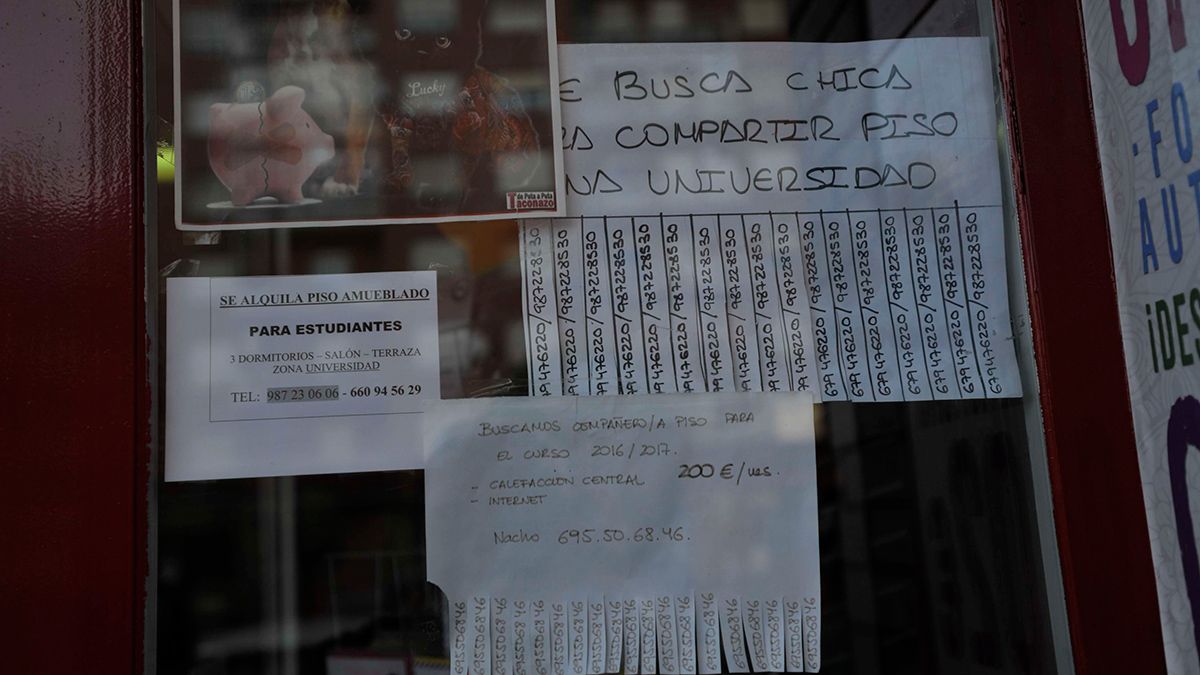 Lucky
de Pata a Pata
Taconazo
E BUSCA CHICA
RA COMPARTIR PISO
NA UNIVERSIDAD
679476220/987228530
679476220/987228530
679476220/987228530
679476220/987228530
679476220/987228530
679476220/987228530
679476220/987228530
679476220/987228530
679476220/987228530
679476220/987228530
679476220/987228530
679476220/987228530
679476220/987228530
679476220/987228530
679476220/987228530
679476220/987228530
SE ALQUILA PISO AMUEBLADO
PARA ESTUDIANTES
3 DORMITORIOS – SALÓN – TERRAZA
ZONA UNIVERSIDAD
TEL: 987 23 06 06 - 660 94 56 29
BUSCAMOS COMPAÑERO/A PISO PARA
EL CURSO 2016/2017.
- CALEFACCIÓN CENTRAL 200 €/mes.
- INTERNET
Nacho 695.50.68.46.
695506846
695506846
695506846
695506846
695506846
695506846
695506846
695506846
695506846
695506846
695506846
695506846
695506846
695506846
695506846
695506846
695506846
695506846
·FO
AUT
¡DES